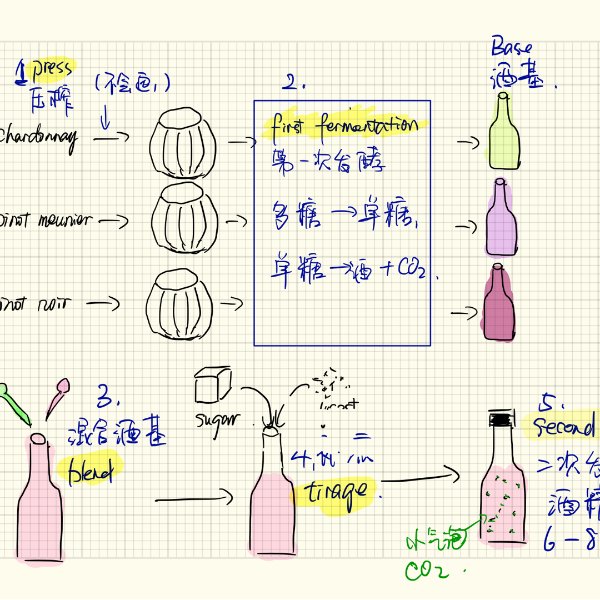 1 press
压榨
(不会画,)
2.
Base
酒基.
chardonnay
first fermentation
第一次发酵
pinot meunier
多糖→单糖,
单糖→酒+CO2.
pinot noir
3.
混合酒基
blend
sugar
4,
tirage.
5.
second
二次发
酒精
6-8
小气泡
CO2.